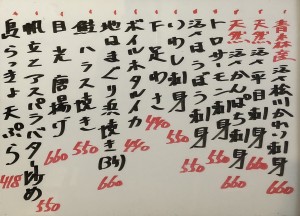 青森産 活〆黒川かわつ刺身 660
天然 活〆平目刺身 660
天然 活〆かんぱち刺身 660
トロサーモン刺身 550
活〆ほうぼう刺身 660
いわし刺身 550
下足わさ 440
ボイルホタルイカ 440
地はまぐり浜焼き(3ヶ) 660
鮭ハラス焼き 550
目光唐揚げ 660
帆立とアスパラバター炒め 550
島らっきょ天ぷら 418